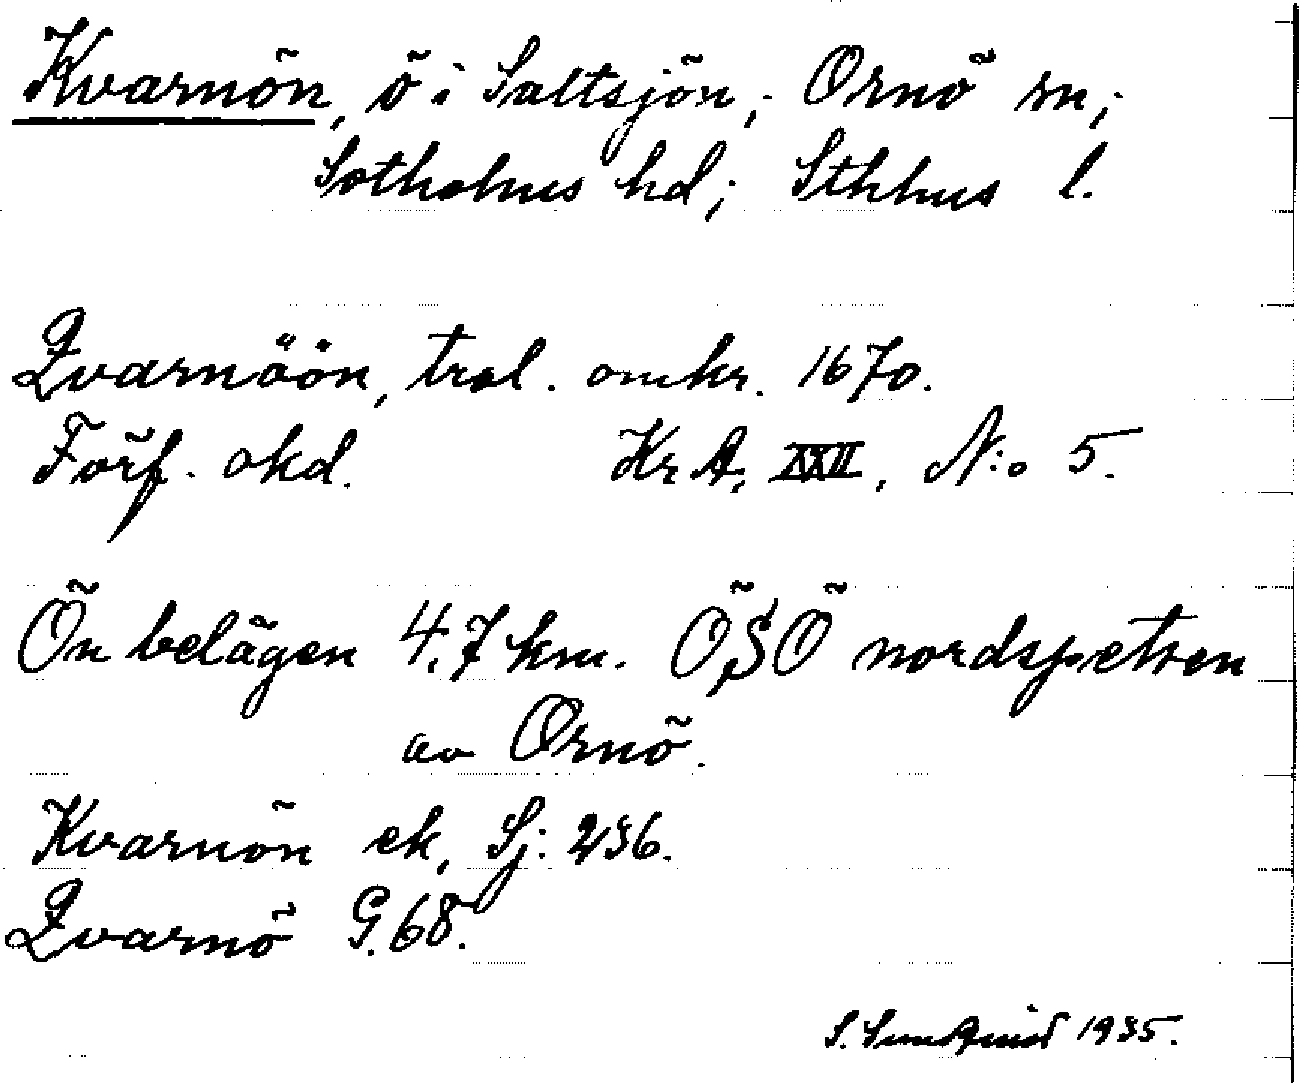 Kvarnön, ö i Saltsjön; Ornö sn;
Sotholms hd; Sthlms l.
Qvarnöön, trol. omkr. 1670.
Förf. okd. Kr.A. XXII, N:o 5.
Ön belägen 4.7 km. ÖSÖ nordspetsen
av Ornö.
Kvarnön ek, Sj: 236.
Qvarnö G.68.
S. 1935.